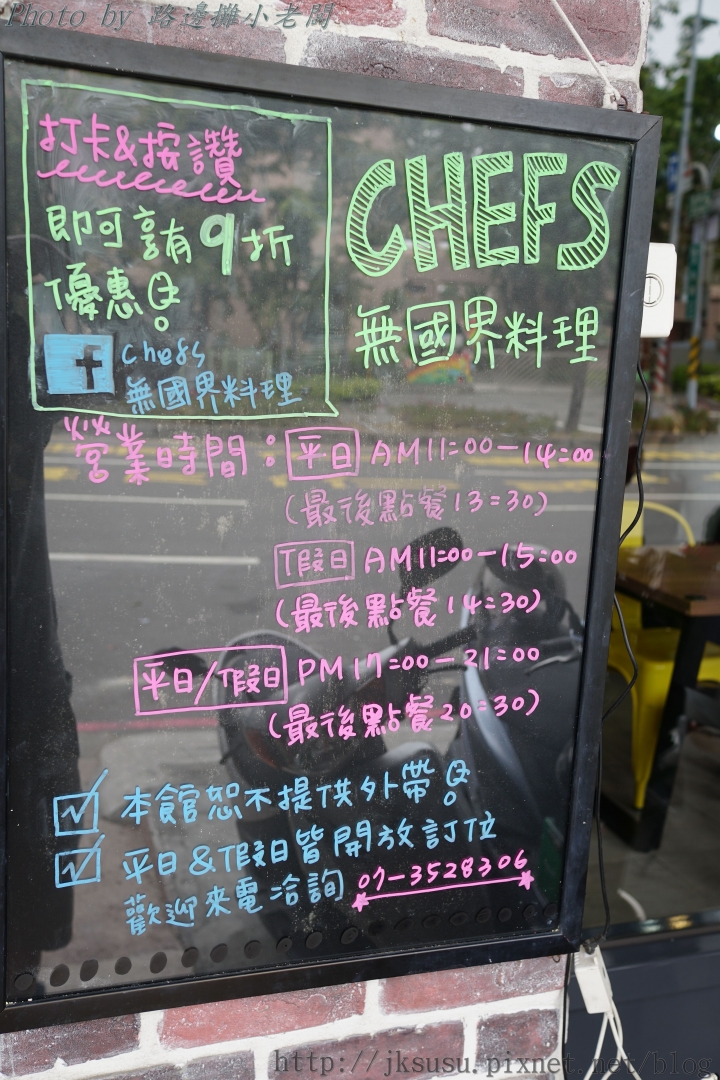 Photo by 路邊攤小老闆
打卡&按讚
即可享有9折
優惠
chefs
無國界料理
CHEFS
無國界料理
營業時間：平日 AM11:00-14:00
(最後點餐13:30)
假日 AM11:00-15:00
(最後點餐14:30)
平日/假日 PM17:00-21:00
(最後點餐20:30)
本館恕不提供外帶。
平日&假日皆開放訂位
歡迎來電洽詢 07-3528306
http://jksusu.pixnet.net/blog